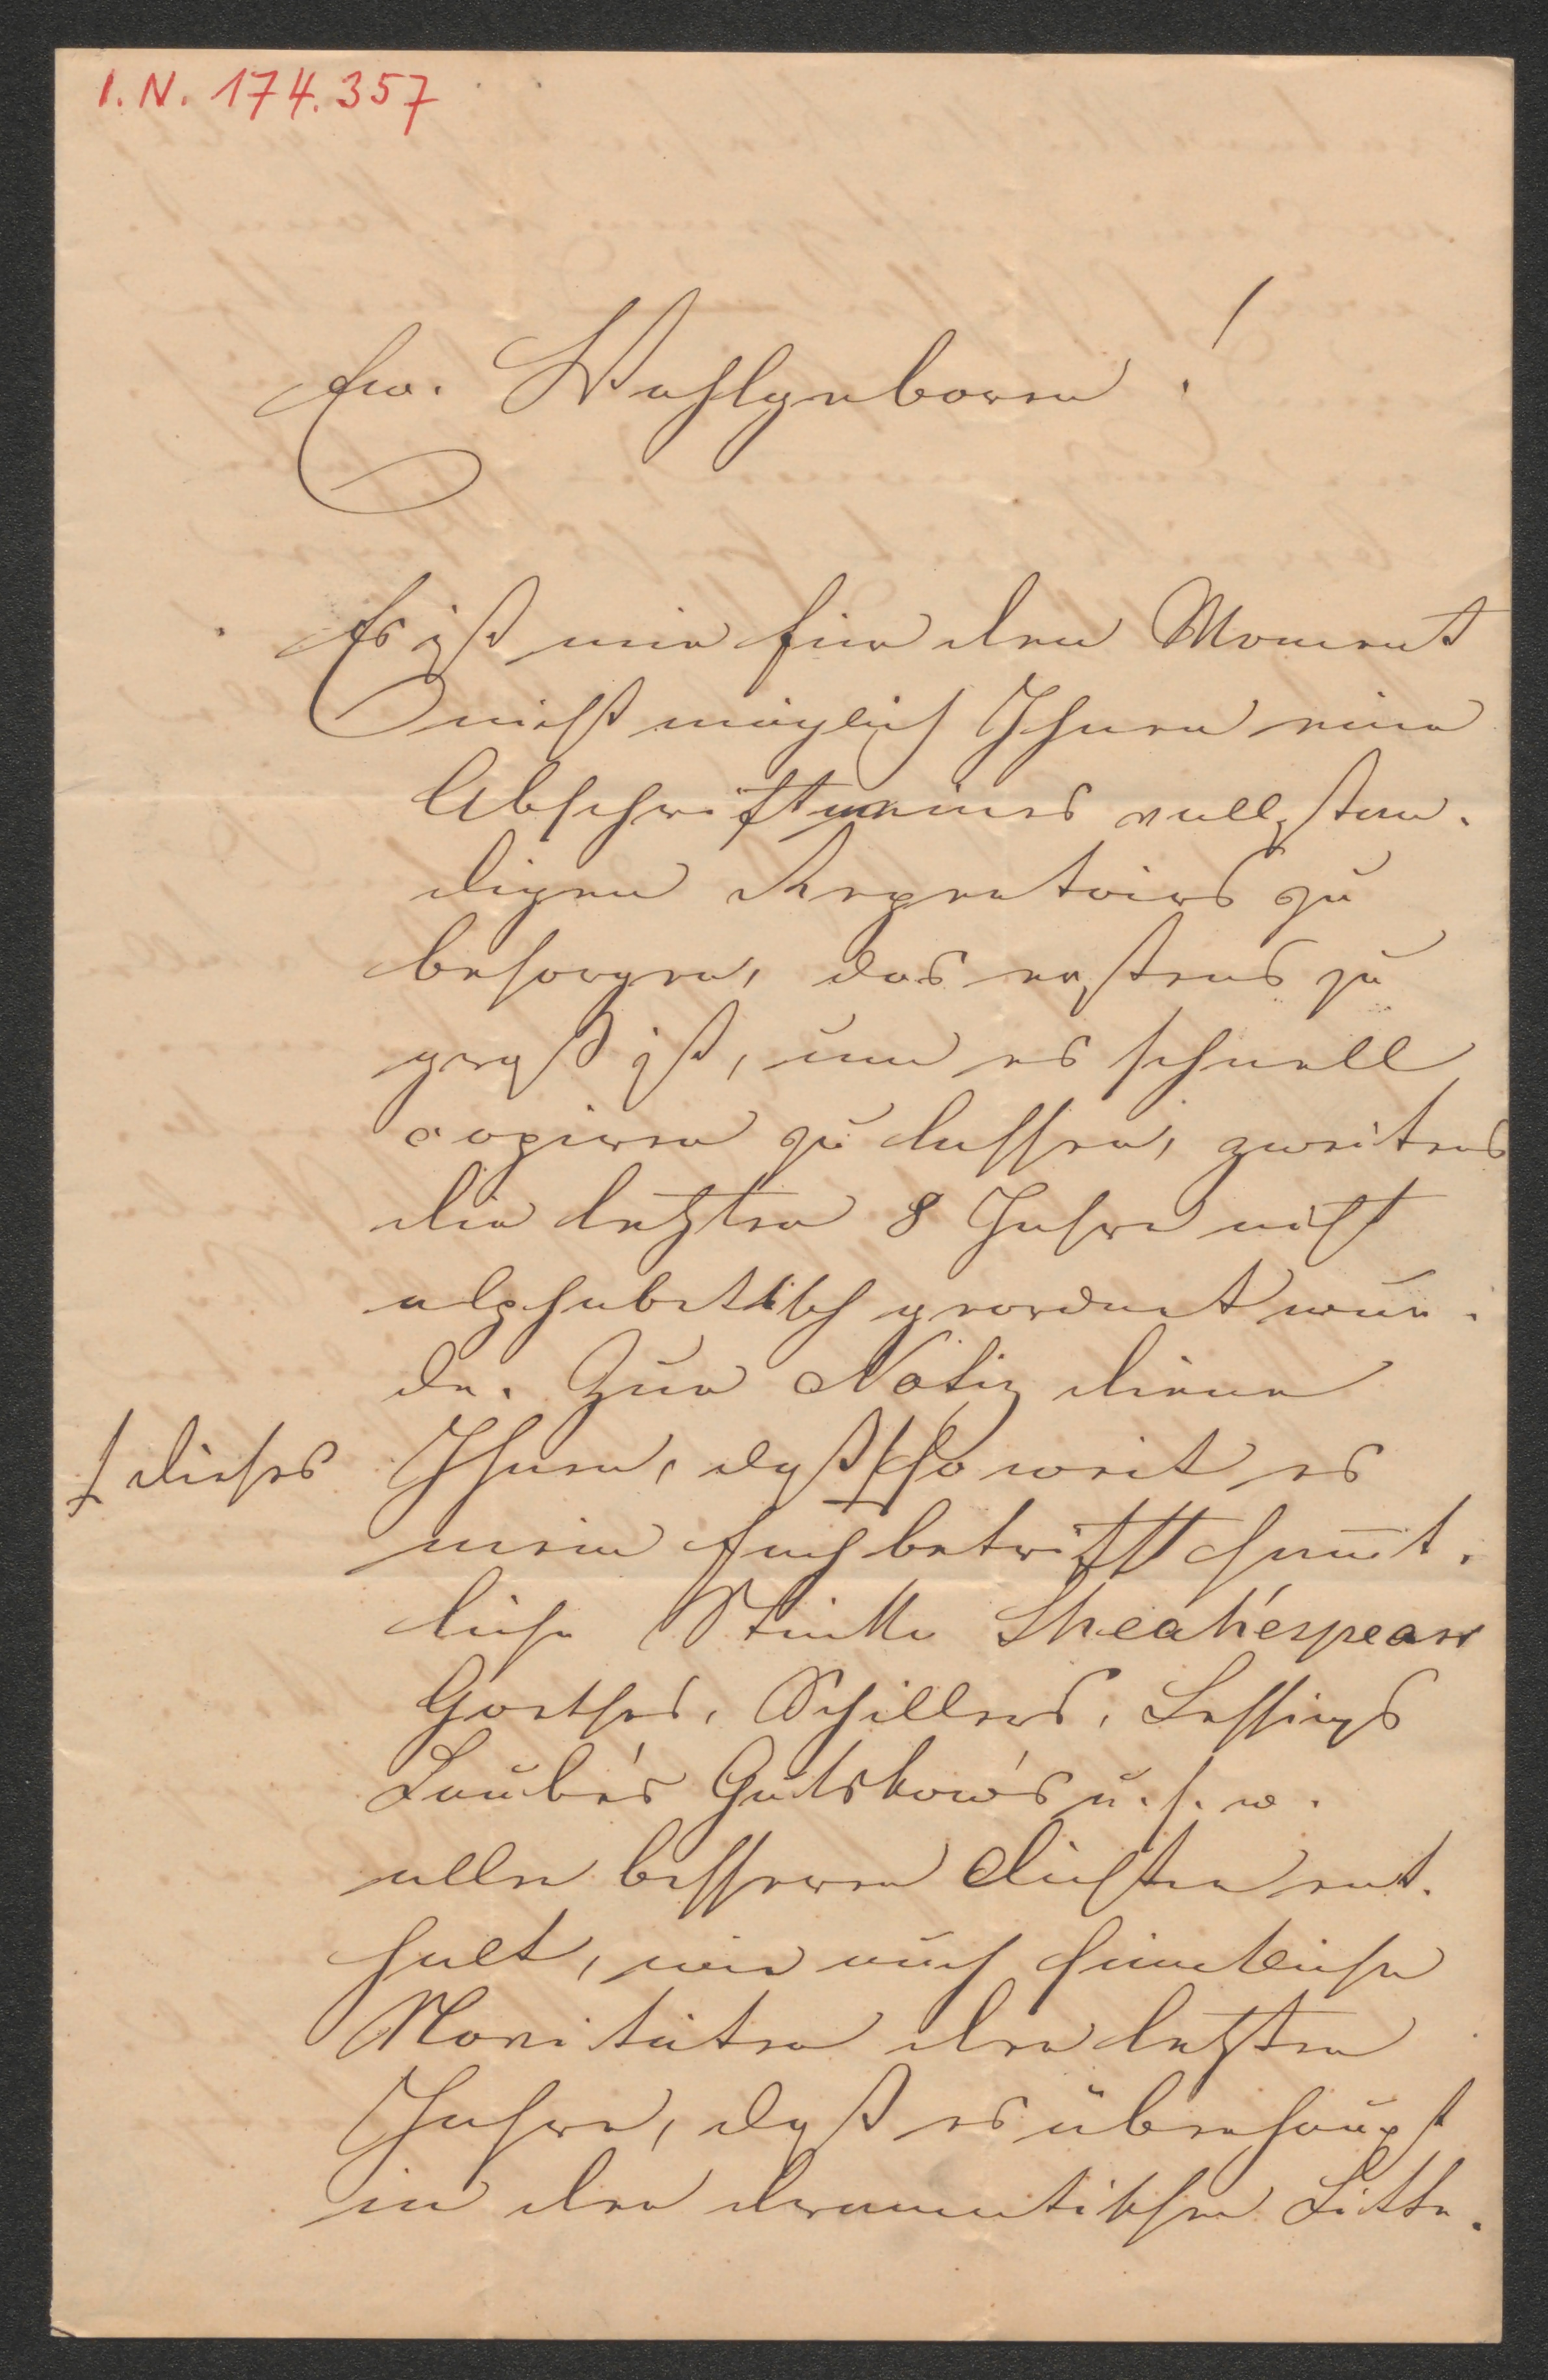 I. N. 174.357
Ew. Wohlgeboren!
Es ist mir für den Moment
nicht möglich Ihnen eine
Abschrift meines vollstän-
digen Repretoirs zu
besorgen, das erstens zu
groß ist, um es schnell
copieren zu lassen, zweitens
die letzten 8 Jahre nicht
alphabetisch geordnet wur-
de. Zur Notiz diene
Ihnen, daß so weit es
dieses
mein Fach betrifft sämt-
liche Stücke Sheakespear
Goethes, Schillers, Lessings
Laube's Gutskow's u. s. w.
aller besseren Dichter ent-
hält, wie auch sämtliche
Novitäten der letzten
Jahre, daß es überhaupt
in der dramatischen Litte-